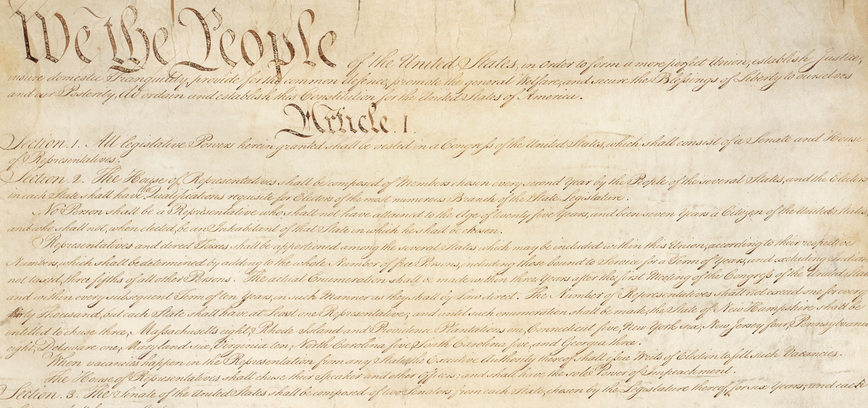 We the People of the United States, in Order to form a more perfect Union, establish Justice,
insure domestic Tranquility, provide for the common defence, promote the general Welfare, and secure the Blessings of Liberty to ourselves
and our Posterity, do ordain and establish this Constitution for the United States of America.
Article. I.
Section. 1. All legislative Powers herein granted shall be vested in a Congress of the United States, which shall consist of a Senate and House
of Representatives.
Section. 2. The House of Representatives shall be composed of Members chosen every second Year by the People of the several States, and the Electors
in each State shall have Qualifications requisite for Electors of the most numerous Branch of the State Legislature.
No Person shall be a Representative who shall not have attained to the Age of twenty five Years, and been seven Years a Citizen of the United States,
and who shall not, when elected, be an Inhabitant of that State in which he shall be chosen.
Representatives and direct Taxes shall be apportioned among the several States which may be included within this Union, according to their respective
Numbers, which shall be determined by adding to the whole Number of free Persons, including those bound to Service for a Term of Years, and excluding Indians
not taxed, three fifths of all other Persons. The actual Enumeration shall be made within three Years after the first Meeting of the Congress of the United States,
and within every subsequent Term of ten Years, in such Manner as they shall by Law direct. The Number of Representatives shall not exceed one for every
thirty Thousand, but each State shall have at Least one Representative; and until such enumeration shall be made, the State of New Hampshire shall be
entitled to chuse three, Massachusetts eight, Rhode Island and Providence Plantations one, Connecticut five, New York six, New Jersey four, Pennsylvania
eight, Delaware one, Maryland six, Virginia ten, North Carolina five, South Carolina five, and Georgia three.
When vacancies happen in the Representation from any State, the Executive Authority thereof shall issue Writs of Election to fill such Vacancies.
The House of Representatives shall chuse their Speaker and other Officers; and shall have the sole Power of Impeachment.
Section. 3. The Senate of the United States shall be composed of two Senators from each State, chosen by the Legislature thereof, for six Years; and each